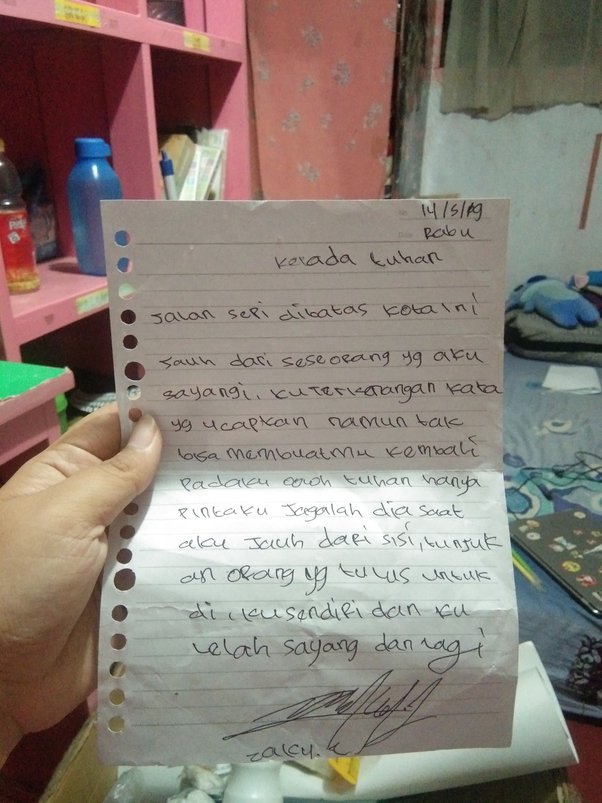 14/5/19
Rabu
Kepada tuhan
Jalan sepi dibatas kota ini
Jauh dari seseorang yg aku
sayangi. Ku terkenangan kata
yg ucapkan namun tak
bisa membuatmu kembali
padaku oooh tuhan hanya
pintaku Jagalah dia saat
aku Jauh dari sisi, tunjuk
an orang yg tulus untuk
di iku sendiri dan ku
lelah sayang dan lagi
zaky.k